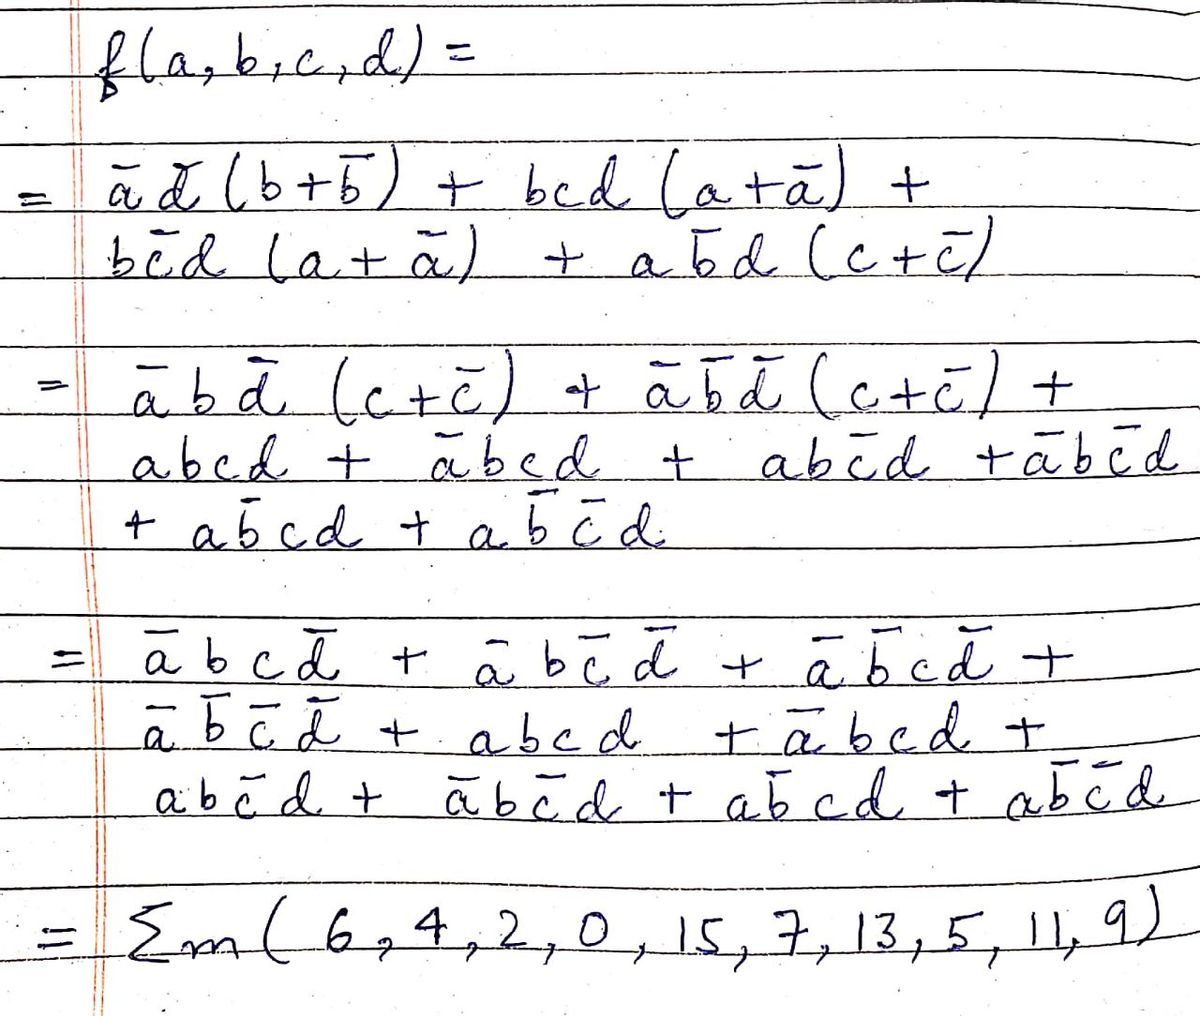 f(a,b,c,d) =
= ād̄(b+b̄) + bcd (a+ā) +
bc̄d (a+ā) + ab̄d (c+c̄)
= ābd̄ (c+c̄) + āb̄d̄ (c+c̄) +
abcd + ābcd + abc̄d + ābc̄d
+ ab̄cd + ab̄c̄d
= ābcd̄ + ābc̄d̄ + āb̄cd̄ +
āb̄c̄d̄ + abcd + ābcd +
abc̄d + ābc̄d + ab̄cd + ab̄c̄d
= Σm( 6, 4, 2, 0, 15, 7, 13, 5, 11, 9)